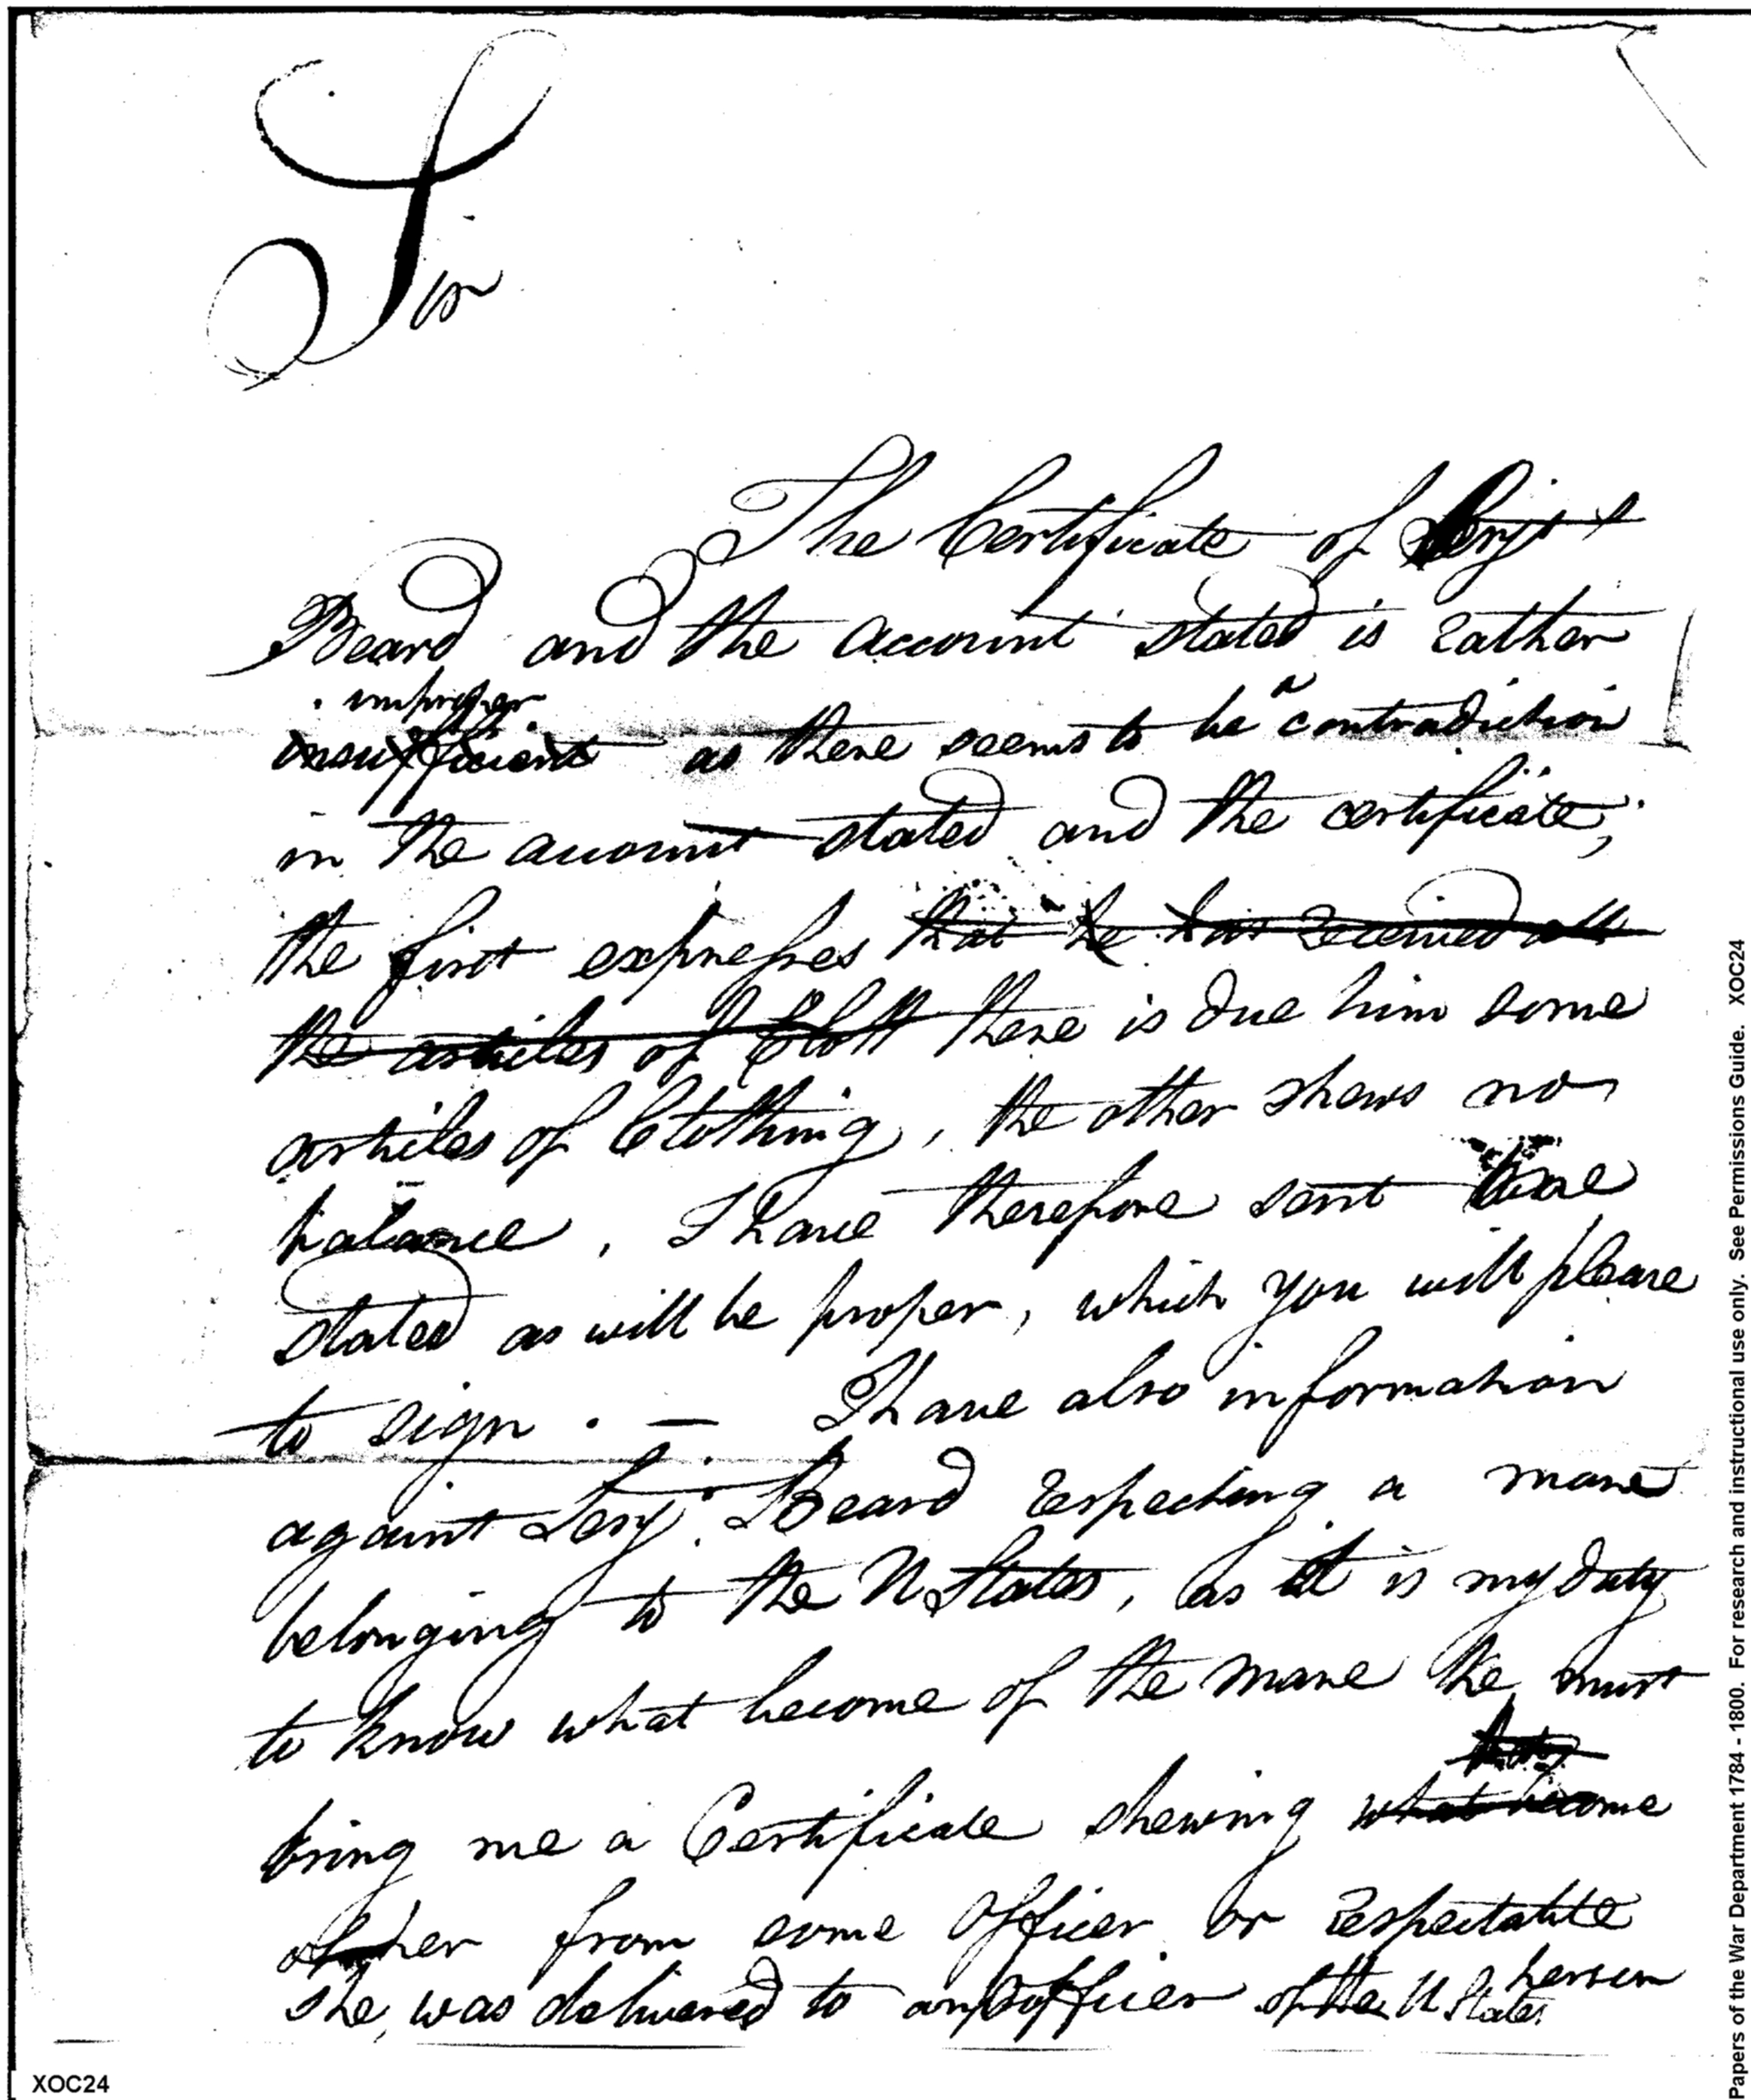 Sir
The Certificate of Serjt
Beard and the account stated is rather
improper
insufficient as there seems to be a contradiction
in the account stated and the certificate,
the first expresses that he has received all
the articles of Cloth there is due him some
articles of Clothing, the other shews no
balance, I have therefore sent one
stated as will be proper, which you will please
to sign. — I have also information
against Serj. Beard respecting a mare
belonging to the U States, as it is my duty
to know what become of the mare he must
bring me a Certificate shewing what become
of her from some Officer or respectable
person
she was delivered to an officer of the U States
Papers of the War Department 1784 - 1800. For research and instructional use only. See Permissions Guide. XOC24
XOC24